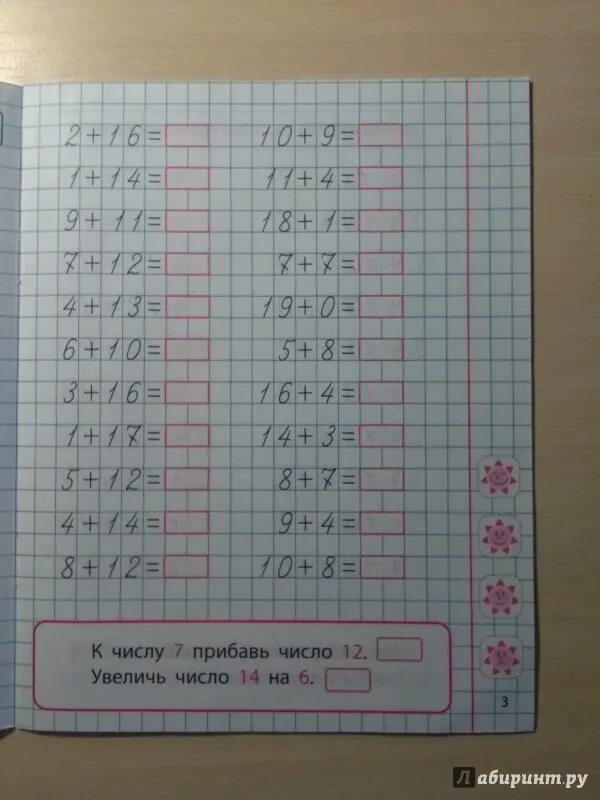 2+16= 10+9=
1+14= 11+4=
9+11= 18+1=
7+12= 7+7=
4+13= 19+0=
6+10= 5+8=
3+16= 16+4=
1+17= 14+3=
5+12= 8+7=
4+14= 9+4=
8+12= 10+8=
К числу 7 прибавь число 12.
Увеличь число 14 на 6.
3
Лабиринт.ру